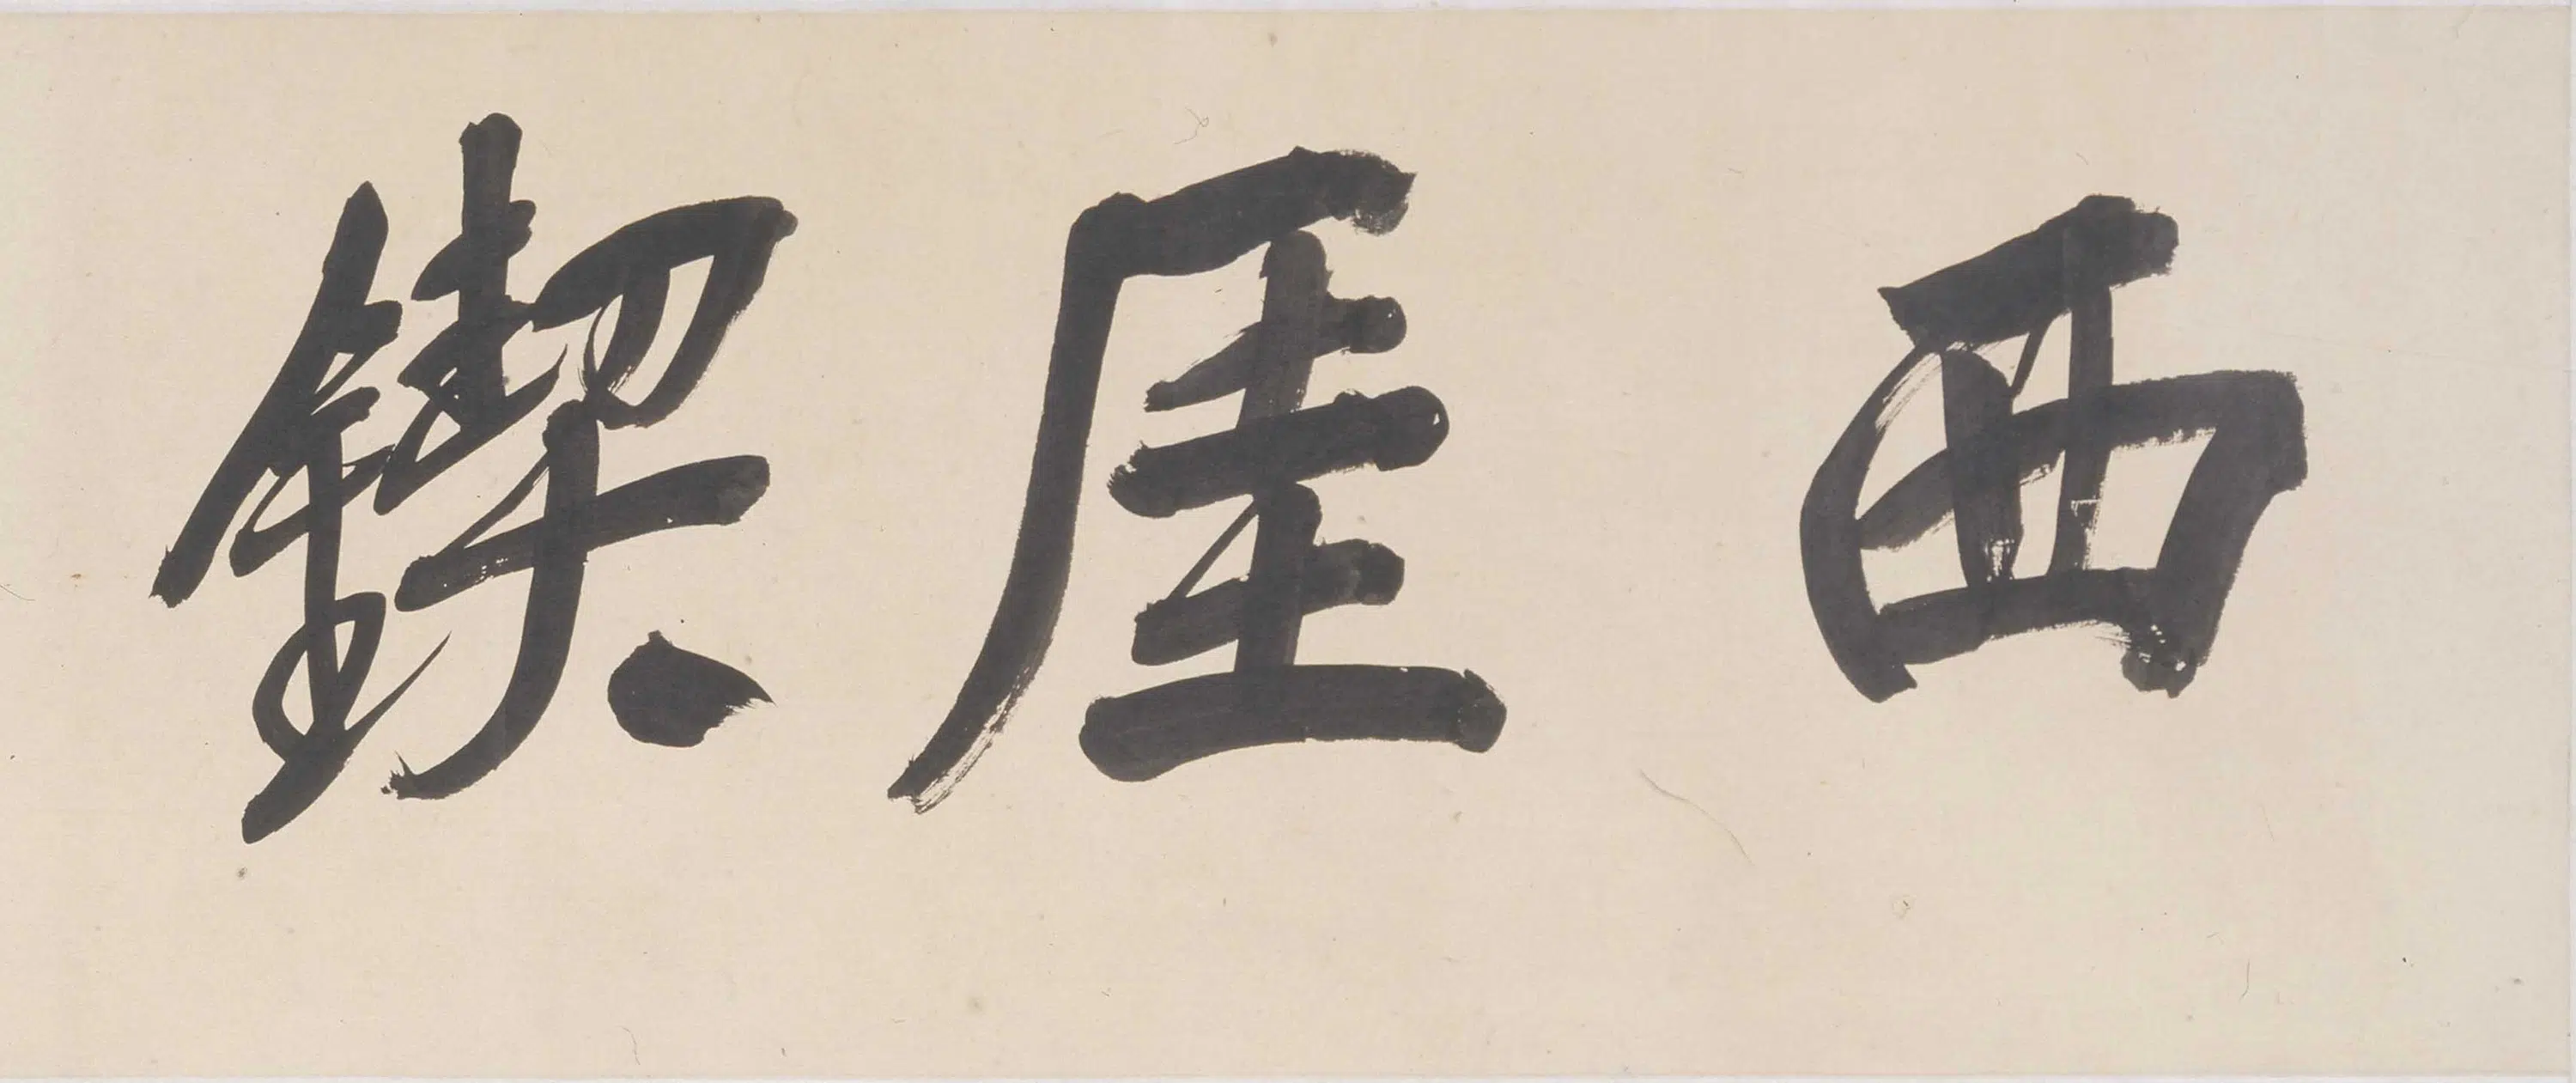 西厓鍥